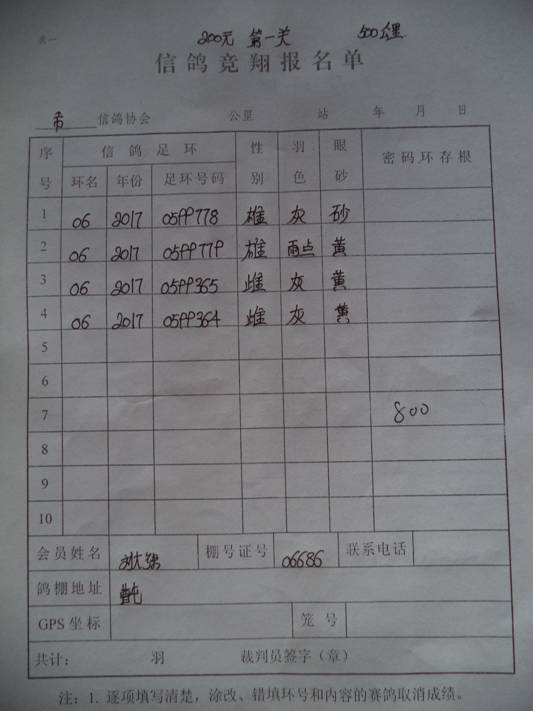 表一
200元 第一关 500公里
信鸽竞翔报名单
市 信鸽协会 公里 站 年 月 日
序号 信鸽足环 性别 羽色 眼砂 密码环存根
环名 年份 足环号码
1 06 2017 0599778 雄 灰 砂
2 06 2017 0599779 雄 雨点 黄
3 06 2017 0599365 雌 灰 黄
4 06 2017 0599364 雌 灰 黄
5
6
7 800
8
9
10
会员姓名 棚号证号 06686 联系电话
鸽棚地址
GPS坐标 笼号
共计： 羽 裁判员签字（章）
注：1. 逐项填写清楚，涂改、错填环号和内容的赛鸽取消成绩。